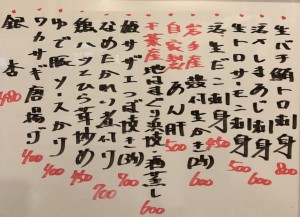 生バチ鮪トロ刺身 800
活〆しまあじ刺身 600
生トロサーモン刺身 500
活生だこ刺身 450
岩手産 殻付生かき(2ヶ) 600
自家製 あん肝 500
千葉産 地はまぐり浜焼 酒蒸し 600
姫サザエつぼ焼き(2ヶ) 600
なめたかれい煮付け 700
鶏ハツとひら茸炒め 450
ゆで豚ソースかつ 400
ワカサギ唐揚げ 400
銀杏 480